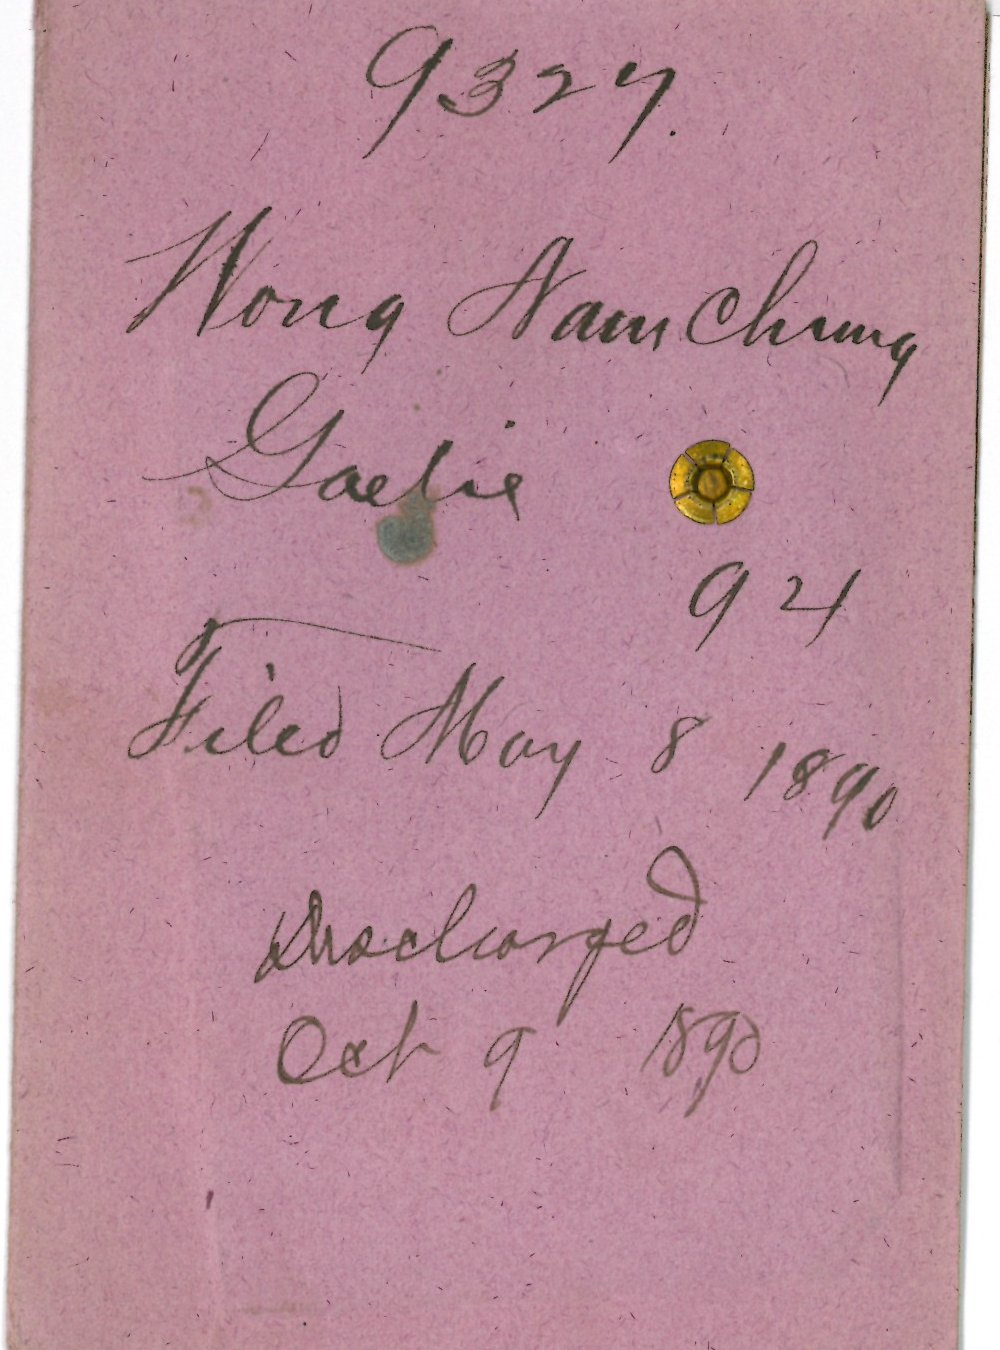 9327.
Wong Nam Chung
Gaelic
94
Filed May 8 1890
Discharged
Oct 9 1890